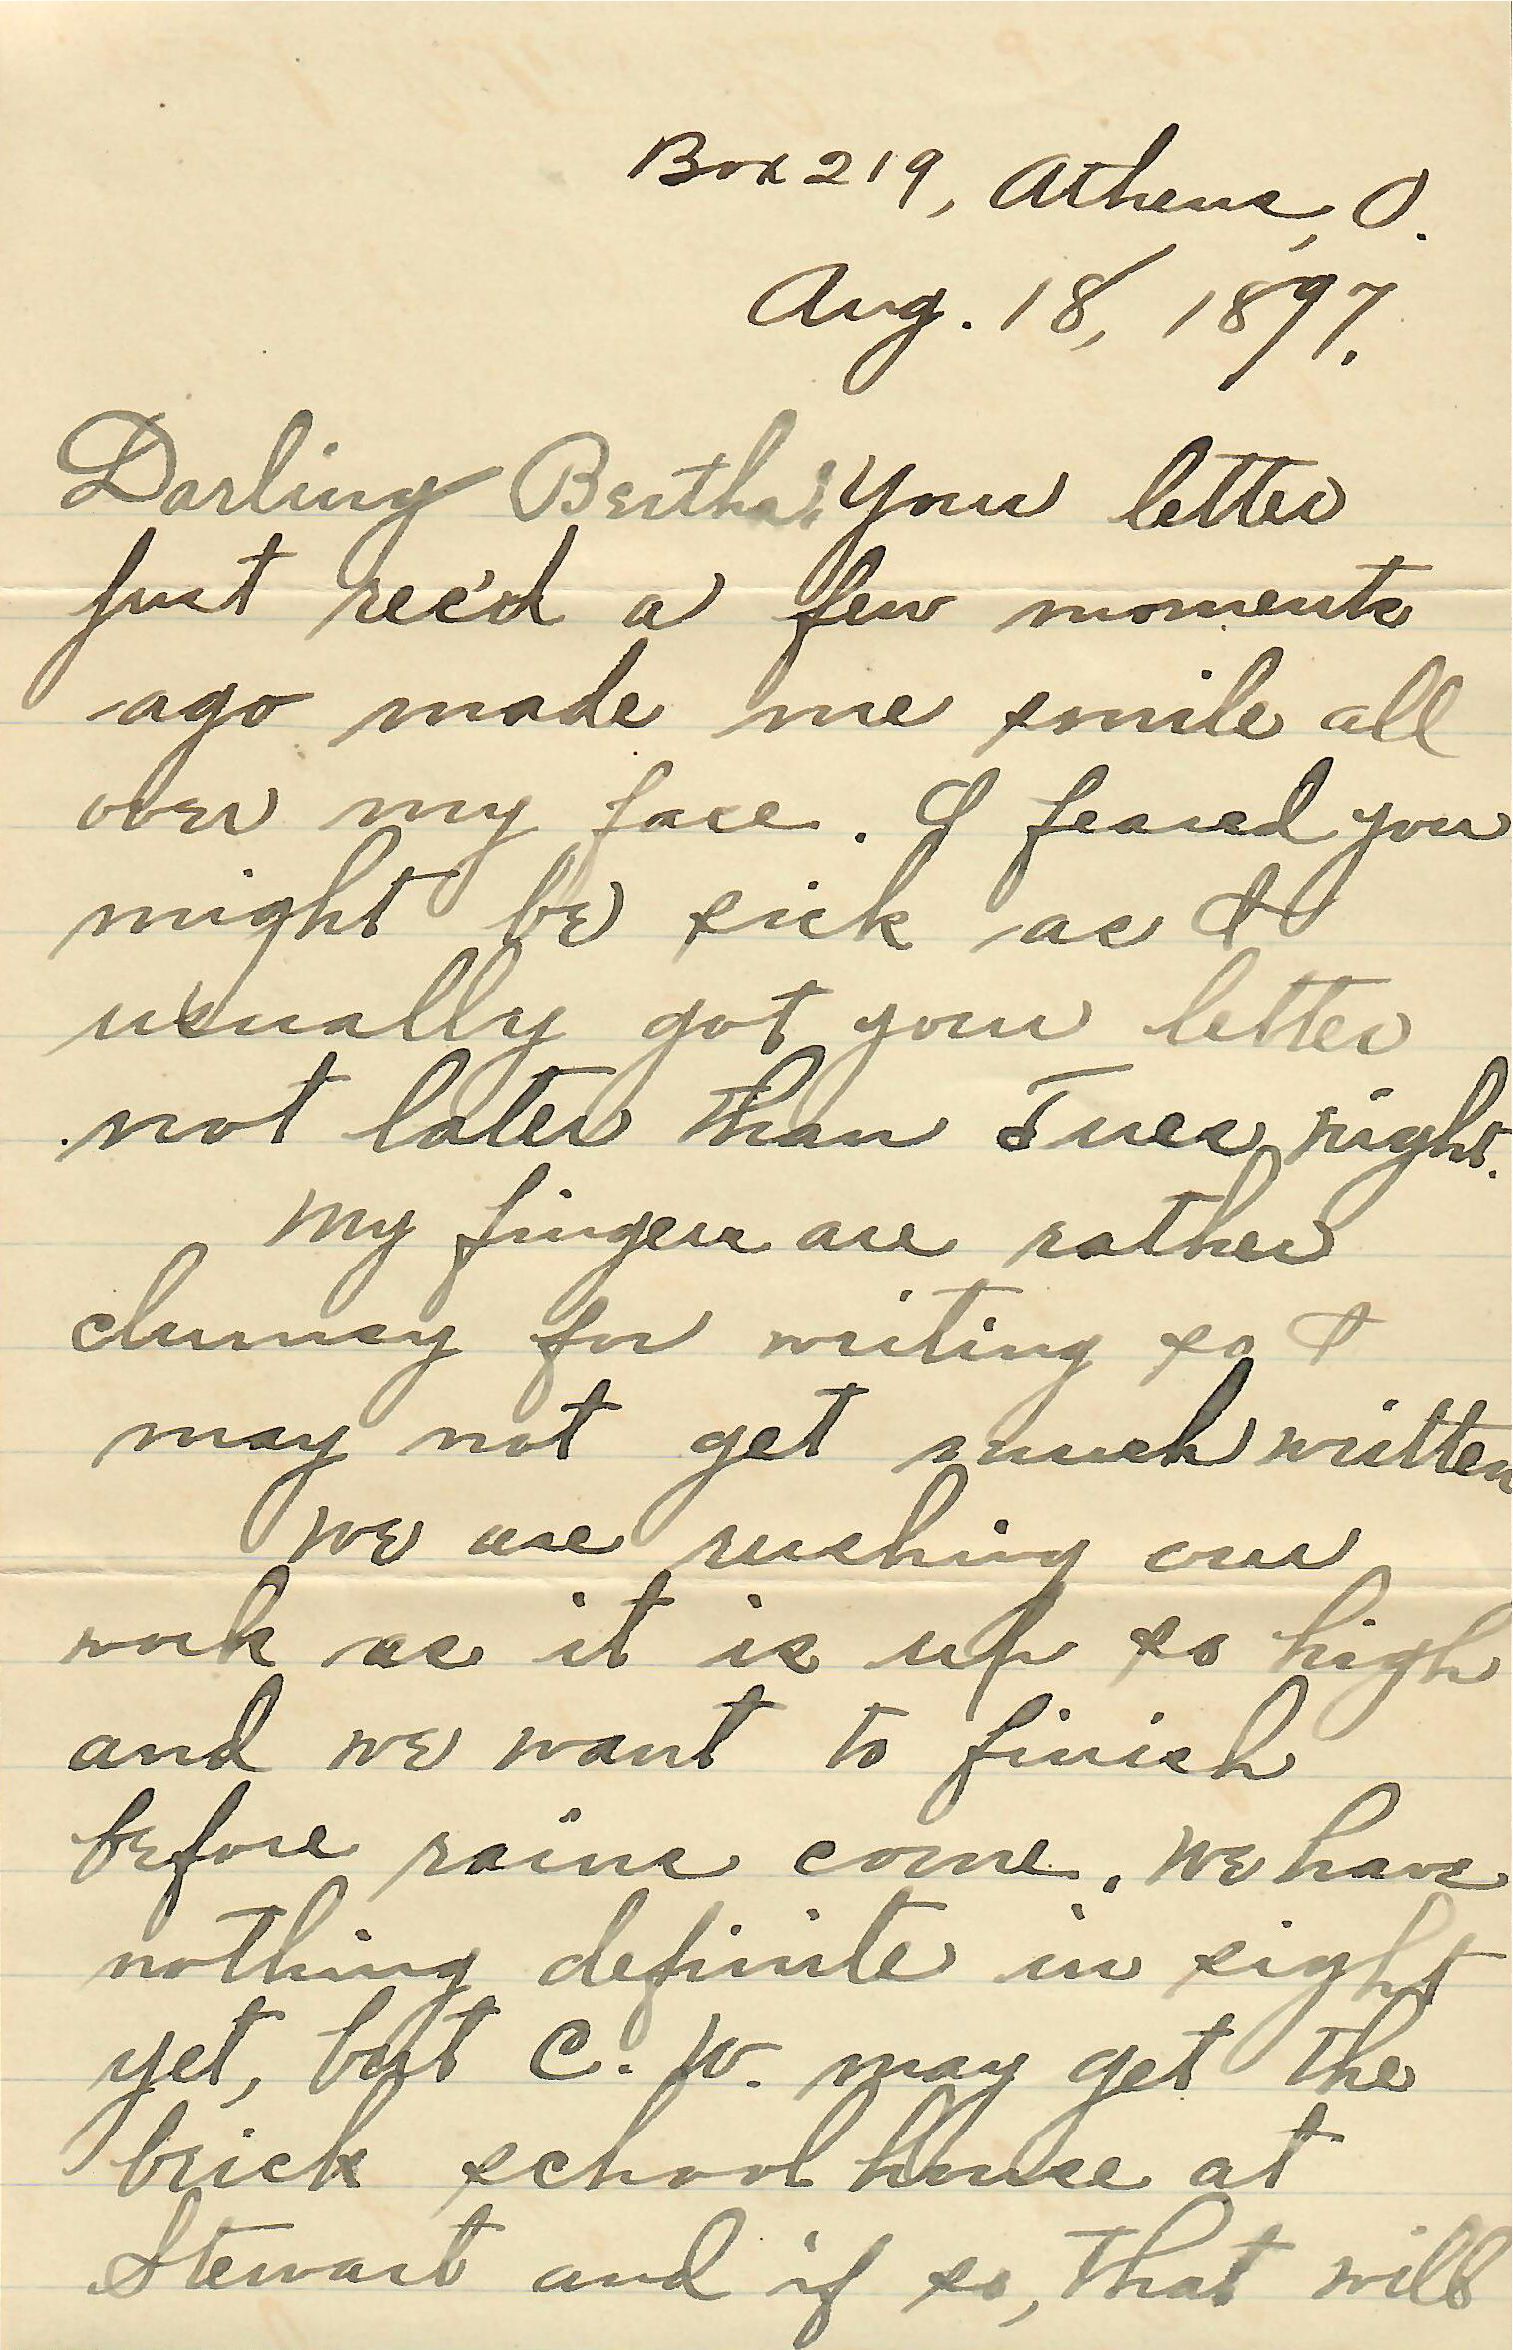 Box 219, Athens, O.
Aug. 18, 1897.
Darling Bertha: Your letter
just rec'd a few moments
ago made me smile all
over my face. I feared you
might be sick as I
usually got your letter
not later than Tues, night.
My fingers are rather
clumsy for writing so I
may not get much written
We are rushing our
work as it is up so high
and we want to finish
before rains come. We have
nothing definite in sight
yet, but C. W. may get the
brick school house at
Stewart and if so, that will